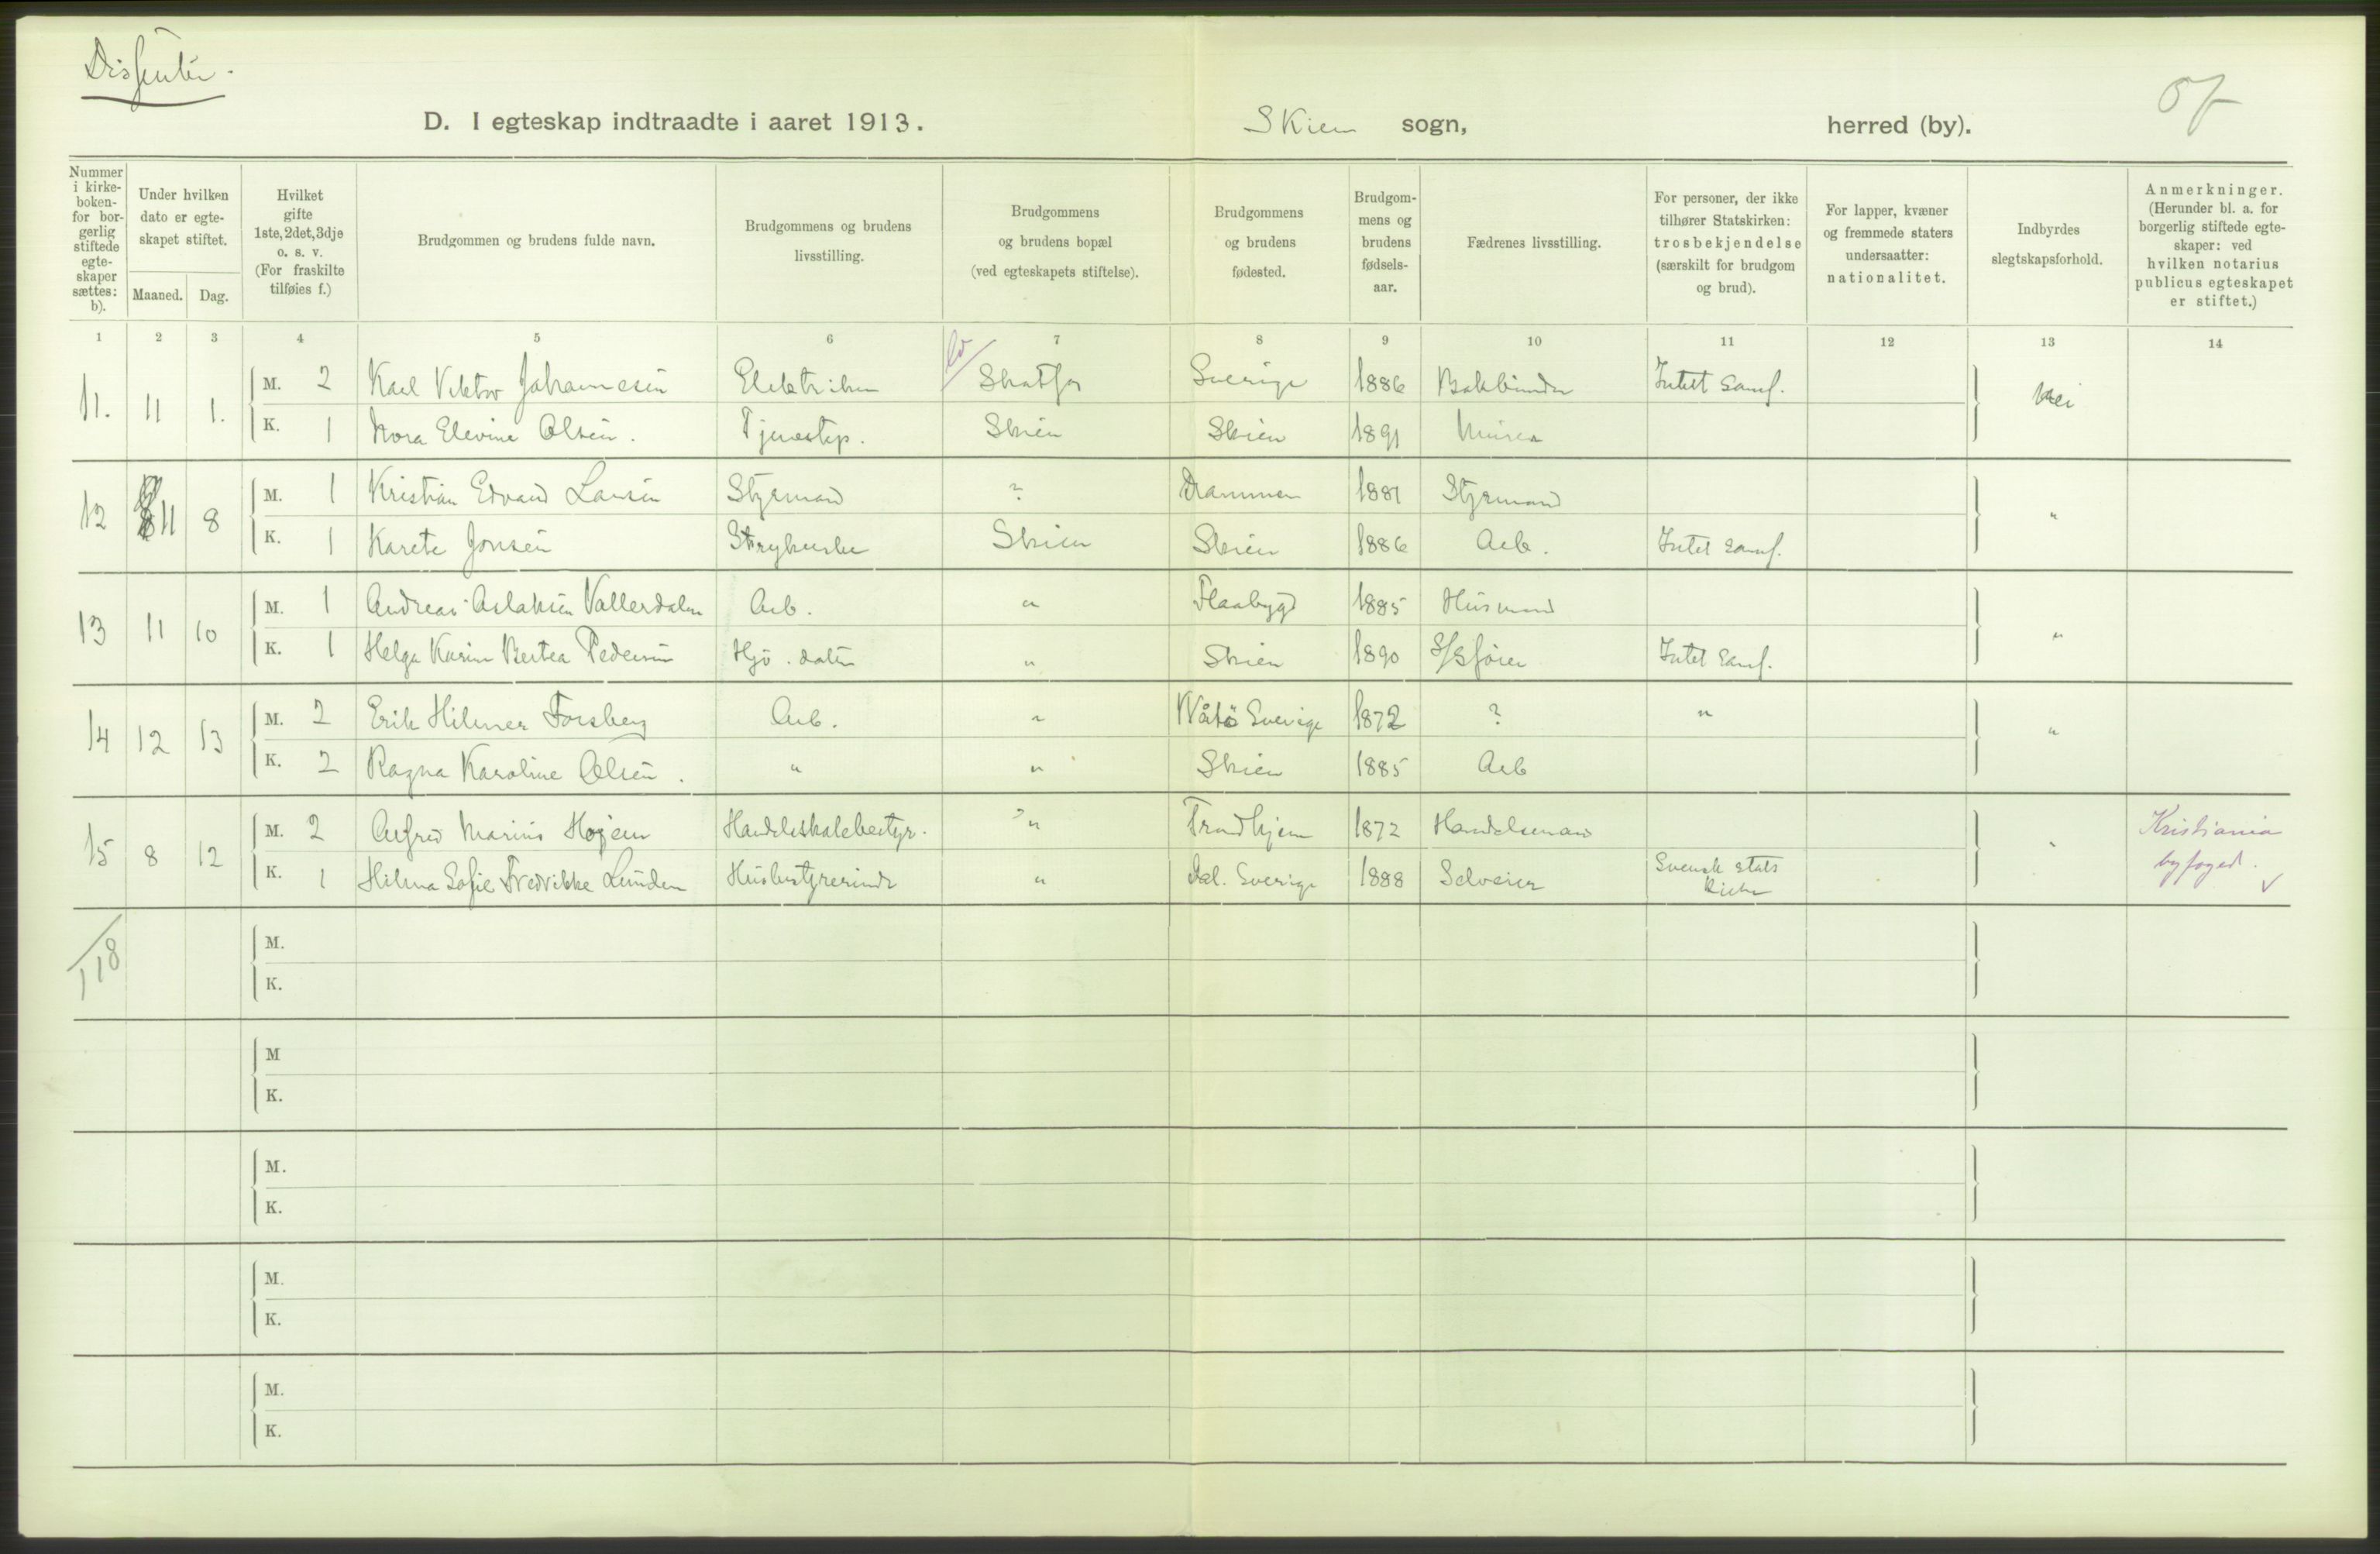 Dissenter.
D. I egteskap indtraadte i aaret 1913. Skien sogn, herred (by).
Nummer i kirkeboken- for borgerlig stiftede egteskaper sættes: b).
Under hvilken dato er egteskapet stiftet.
Maaned. Dag.
Hvilket gifte 1ste, 2det, 3dje o. s. v. (For fraskilte tilføies f.)
Brudgommen og brudens fulde navn.
Brudgommens og brudens livsstilling.
Brudgommens og brudens bopæl (ved egteskapets stiftelse).
Brudgommens og brudens fødested.
Brudgommens og brudens fødselsaar.
Fædrenes livsstilling.
For personer, der ikke tilhører Statskirken: trosbekjendelse (særskilt for brudgom og brud).
For lapper, kvæner og fremmede staters undersaatter: nationalitet.
Indbyrdes slegtskapsforhold.
Anmerkninger. (Herunder bl. a. for borgerlig stiftede egteskaper: ved hvilken notarius publicus egteskapet er stiftet.)
1 2 3 4 5 6 7 8 9 10 11 12 13 14
11. 11 1. M. 2 Karl Viktor Johannesen Elektriker Skotfos Sverige 1886 Bokbinder Intet samf. Nei
K. 1 Nora Elevine Olsen. Tjenestep. Skien Skien 1891 Murer
12 11 8 M. 1 Kristian Edvard Larsen Styrmand ? Drammen 1881 Styrmand "
K. 1 Karete Jonsen Strykerske Skien Skien 1886 Arb. Intet samf.
13 11 10 M. 1 Andreas Aslaksen Vallerdalen Arb. " Flaabygd 1885 Husmand "
K. 1 Helga Karin Bertea Pedersen Hjv. datter " Skien 1890 S/S fører Intet samf.
14 12 13 M. 2 Erik Hilmer Forsberg Arb. " Sverige 1872 ? " "
K. 2 Ragna Karoline Olsen. " " Skien 1885 Arb
15 8 12 M. 2 Alfred Marius Hojem Handelsskolebestyr. ? " Trondhjem 1872 Handelsmand " Kristiania
K. 1 Hilma Sofie Fredrikke Lunden Husbestyrerinde " Dal. Sverige 1888 Selveier Svensk stats kirke byfoged.
118
M.
K.
M
K.
M.
K.
M.
K.
M.
K.